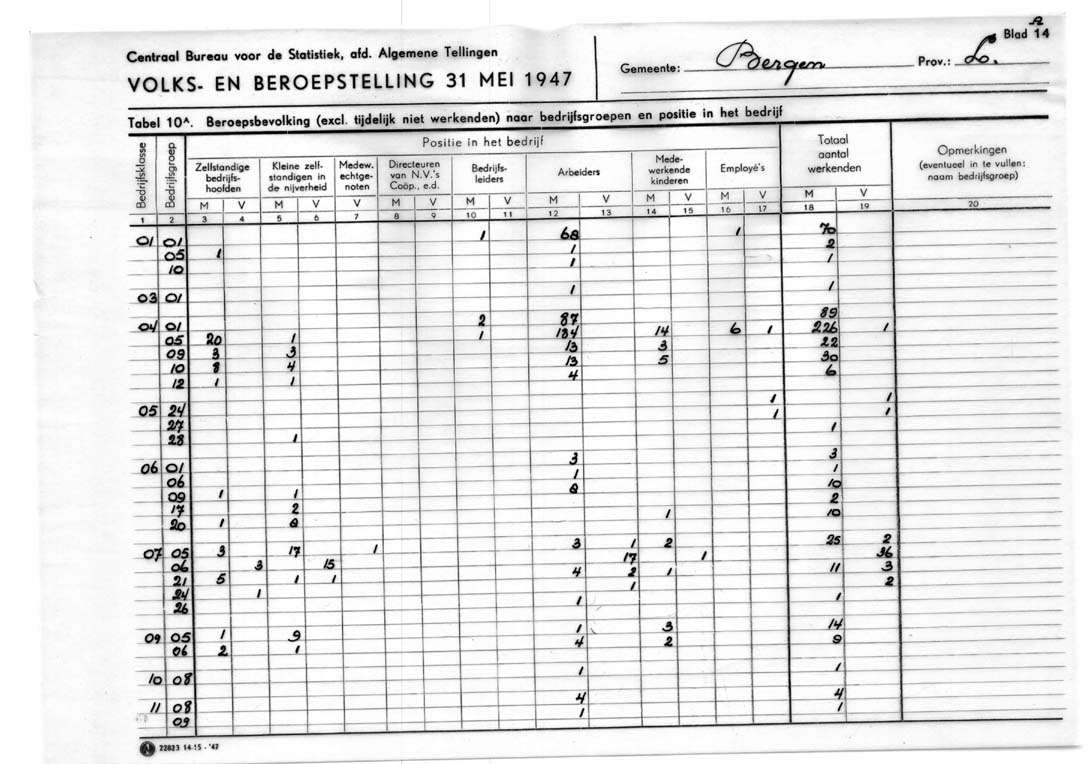 A
Blad 14
Centraal Bureau voor de Statistiek, afd. Algemene Tellingen
VOLKS- EN BEROEPSTELLING 31 MEI 1947
Gemeente: Bergen Prov.: L.
Tabel 10A. Beroepsbevolking (excl. tijdelijk niet werkenden) naar bedrijfsgroepen en positie in het bedrijf
Bedrijfsklasse
Bedrijfsgroep
Positie in het bedrijf
Zelfstandige
bedrijfs-
hoofden
Kleine zelf-
standigen in
de nijverheid
Medew.
echtge-
noten
Directeuren
van N.V.'s
Coöp., e.d.
Bedrijfs-
leiders
Arbeiders
Mede-
werkende
kinderen
Employé's
Totaal
aantal
werkenden
Opmerkingen
(eventueel in te vullen:
naam bedrijfsgroep)
M V M V V M V M V M V M V M V M V
1 2 3 4 5 6 7 8 9 10 11 12 13 14 15 16 17 18 19 20
01 01 1 68 1 70
05 1 1 2
10 1 1
03 01 1 1
04 01 2 87 89
05 20 1 1 184 14 6 1 226 1
09 3 3 13 3 22
10 8 4 13 5 30
12 1 1 4 6
05 24 1 1
27 1 1
28 1 1
06 01 3 3
06 1 1
09 1 1 8 10
17 2 2
20 1 8 1 10
07 05 3 17 1 3 1 2 25 2
06 3 15 17 1 36
21 5 1 1 4 2 1 11 3
24 1 1 2
26 1 1
09 05 1 9 1 3 14
06 2 1 4 2 9
10 08 1 1
11 08 4 4
09 1 1
22823 14-15 - '47